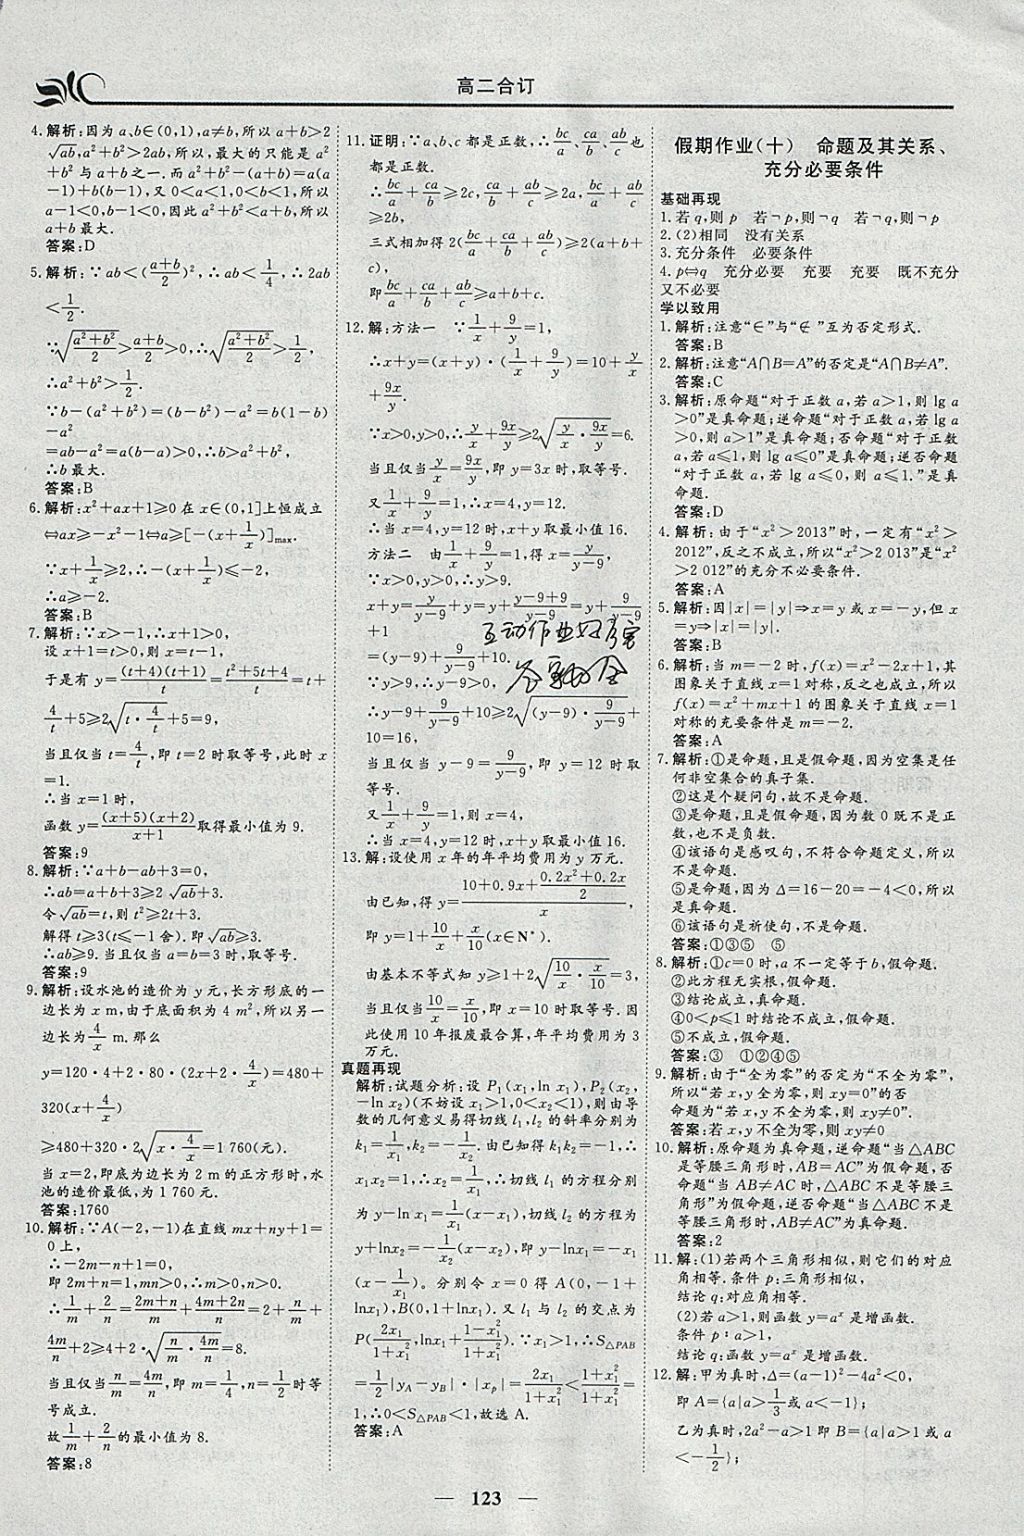 高二合订
4.解析:因为a、b∈(0,1),a≠b,所以a+b>2
√ab,a²+b²>2ab,所以,最大的只能是a²
+b²与a+b之一.而a²+b²-(a+b)=a(a
-1)+b(b-1),又0<a<1,0<b<1,所以
a-1<0,b-1<0,因此a²+b²<a+b,所以
a+b最大.
答案:D
5.解析:∵ab<((a+b)/2)²,∴ab<1/4,∴2ab
<1/2.
∵√((a²+b²)/2)>(a+b)/2>0,∴√((a²+b²)/2)>1/2,
∴a²+b²>1/2.
∵b-(a²+b²)=(b-b²)-a²=b(1-b)
-a²
=ab-a²=a(b-a)>0,∴b>a²+b²,
∴b最大.
答案:B
6.解析:x²+ax+1≥0在x∈(0,1]上恒成立
⇔ax≥-x²-1⇔a≥[-(x+1/x)]max.
∵x+1/x≥2,∴-(x+1/x)≤-2,
∴a≥-2.
答案:B
7.解析:∵x>-1,∴x+1>0,
设x+1=t>0,则x=t-1,
于是有y=((t+4)(t+1))/t=(t²+5t+4)/t=t+
4/t+5≥2√(t·4/t)+5=9,
当且仅当t=4/t,即t=2时取等号,此时x
=1.
∴当x=1时,
函数y=((x+5)(x+2))/(x+1)取得最小值为9.
答案:9
8.解析:∵a+b-ab+3=0,
∴ab=a+b+3≥2√ab+3.
令√ab=t,则t²≥2t+3.
解得t≥3(t≤-1舍).即√ab≥3.
∴ab≥9.当且仅当a=b=3时,取等号.
答案:9
9.解析:设水池的造价为y元,长方形底的一
边长为x m,由于底面积为4 m²,所以另一
边长为4/x m.那么
y=120·4+2·80·(2x+2·4/x)=480+
320(x+4/x)
≥480+320·2√(x·4/x)=1 760(元).
当x=2,即底为边长为2 m的正方形时,水
池的造价最低,为1 760元.
答案:1760
10.解析:∵A(-2,-1)在直线mx+ny+1=
0上,
∴-2m-n+1=0,
即2m+n=1,mn>0,∴m>0,n>0.
∴1/m+2/n=(2m+n)/m+(4m+2n)/n=2+n/m+
4m/n+2≥4+2·√(n/m·4m/n)=8.
当且仅当n/m=4m/n,即m=1/4,n=1/2时等
号成立.
故1/m+2/n的最小值为8.
答案:8
11.证明:∵a、b、c都是正数,∴bc/a、ca/b、ab/c也都
是正数.
∴bc/a+ca/b≥2c,ca/b+ab/c≥2a,bc/a+ab/c
≥2b,
三式相加得2(bc/a+ca/b+ab/c)≥2(a+b+
c),
即bc/a+ca/b+ab/c≥a+b+c.
12.解:方法一 ∵1/x+9/y=1,
∴x+y=(x+y)·(1/x+9/y)=10+y/x
+9x/y.
∵x>0,y>0,∴y/x+9x/y≥2√(y/x·9x/y)=6.
当且仅当y/x=9x/y,即y=3x时,取等号.
又1/x+9/y=1,∴x=4,y=12.
∴当x=4,y=12时,x+y取最小值16.
方法二 由1/x+9/y=1,得x=y/(y-9),
∵x>0,y>0,∴y>9.
x+y=y/(y-9)+y=y+(y-9+9)/(y-9)=y+9/(y-9)
+1
=(y-9)+9/(y-9)+10.
∵y>9,∴y-9>0,
∴y-9+9/(y-9)+10≥2√((y-9)·9/(y-9))+
10=16,
当且仅当y-9=9/(y-9),即y=12时取
等号.
又1/x+9/y=1,则x=4,
∴当x=4,y=12时,x+y取最小值16.
13.解:设使用x年的年平均费用为y万元.
由已知,得y=(10+0.9x+(0.2x²+0.2x)/2)/x,
即y=1+10/x+x/10(x∈N*).
由基本不等式知y≥1+2√(10/x·x/10)=3,
当且仅当10/x=x/10,即x=10时取等号.因
此使用10年报废最合算,年平均费用为3
万元.
真题再现
解析:试题分析:设P₁(x₁,ln x₁),P₂(x₂,
-ln x₂)(不妨设x₁>1,0<x₂<1),则由导
数的几何意义易得切线l₁,l₂的斜率分别为
k₁=1/x₁,k₂=-1/x₂.由已知得k₁k₂=-1,∴
x₁x₂=1,∴x₂=1/x₁.∴切线l₁的方程分别
为y-ln x₁=1/x₁(x-x₁),切线l₂的方程为
y+lnx₂=-1/x₂(x-x₂),即y-lnx₁=-x₁
(x-1/x₁).分别令x=0得A(0,-1+
lnx₁),B(0,1+lnx₁).又l₁与l₂的交点为
P(2x₁/(1+x₁²),lnx₁+(1-x₁²)/(1+x₁²)).∵x₁>1,∴S△PAB
=1/2|yA-yB|·|xp|=2x₁/(1+x₁²)<(1+x₁²)/(1+x₁²)=
1,∴0<S△PAB<1,故选A.
答案:A
互动作业
假期作业(十) 命题及其关系、
充分必要条件
基础再现
1.若q,则p 若¬p,则¬q 若¬q,则¬p
2.(2)相同 没有关系
3.充分条件 必要条件
4.p⇔q 充分必要 充要 充要 既不充分
又不必要
学以致用
1.解析:注意“∈”与“∉”互为否定形式.
答案:B
2.解析:注意“A∩B=A”的否定是“A∩B≠A”.
答案:C
3.解析:原命题“对于正数a,若a>1,则lg a
>0”是真命题;逆命题“对于正数a,若lg a
>0,则a>1”是真命题;否命题“对于正数
a,若a≤1,则lg a≤0”是真命题;逆否命题
“对于正数a,若lg a≤0,则a≤1.”是真
命题.
答案:D
4.解析:由于“x²>2013”时,一定有“x²>
2012”,反之不成立,所以“x²>2 013”是“x²
>2 012”的充分不必要条件.
答案:A
5.解析:因|x|=|y|⇒x=y或x=-y,但x
=y⇒|x|=|y|.
答案:B
6.解析:当m=-2时,f(x)=x²-2x+1,其
图象关于直线x=1对称,反之也成立,所以
f(x)=x²+mx+1的图象关于直线x=1
对称的充要条件是m=-2.
答案:A
7.解析:①是命题,且是假命题,因为空集是任
何非空集合的真子集.
②这是个疑问句,故不是命题.
③是命题,且是假命题,因为数0既不是正
数,也不是负数.
④该语句是感叹句,不符合命题定义,所以
不是命题.
⑤是命题,因为Δ=16-20=-4<0,所以
是真命题.
⑥该语句是祈使句,不是命题.
答案:①③⑤ ⑤
8.解析:①c=0时,a不一定等于b,假命题.
②此方程无实根,假命题.
③结论成立,真命题.
④0<p≤1时结论不成立,假命题.
⑤不成立,假命题.
答案:③ ①②④⑤
9.解析:由于“全为零”的否定为“不全为零”,
所以“若x,y全为零,则xy=0”的否
命题为“若x,y不全为零,则xy≠0”.
答案:若x,y不全为零,则xy≠0
10.解析:原命题为真命题,逆命题“当△ABC
是等腰三角形时,AB=AC”为假命题,否
命题“当AB≠AC时,△ABC不是等腰三
角形”为假命题,逆否命题“当△ABC不是
等腰三角形时,AB≠AC”为真命题.
答案:2
11.解:(1)若两个三角形相似,则它们的对应
角相等.条件p:三角形相似,
结论q:对应角相等.
(2)若a>1,则函数y=aˣ是增函数.
条件p:a>1,
结论q:函数y=aˣ是增函数.
12.解:甲为真时,Δ=(a-1)²-4a²<0,
即A={a|a>1/3或a<-1};
乙为真时,2a²-a>1即B={a|a>1或a
<-1/2};
123